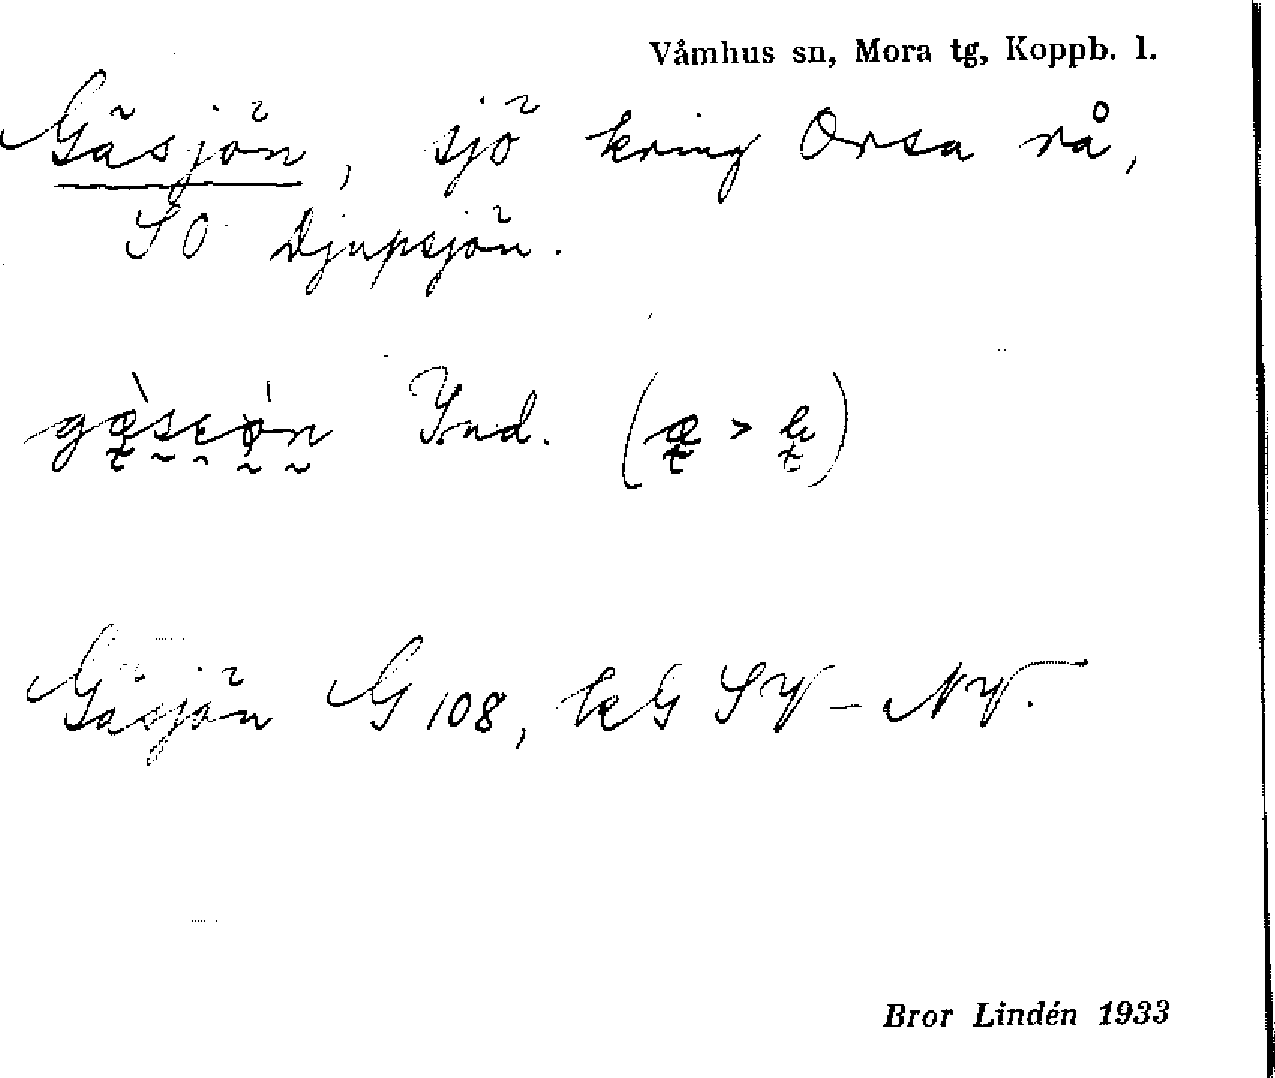 Våmhus sn, Mora tg, Koppb. l.
Gäsjön, sjö kring Orsa rå,
SO Djupsjön.
Ynd. (æ >
Gäsjön G 108, kG SV – NV.
Bror Lindén 1933